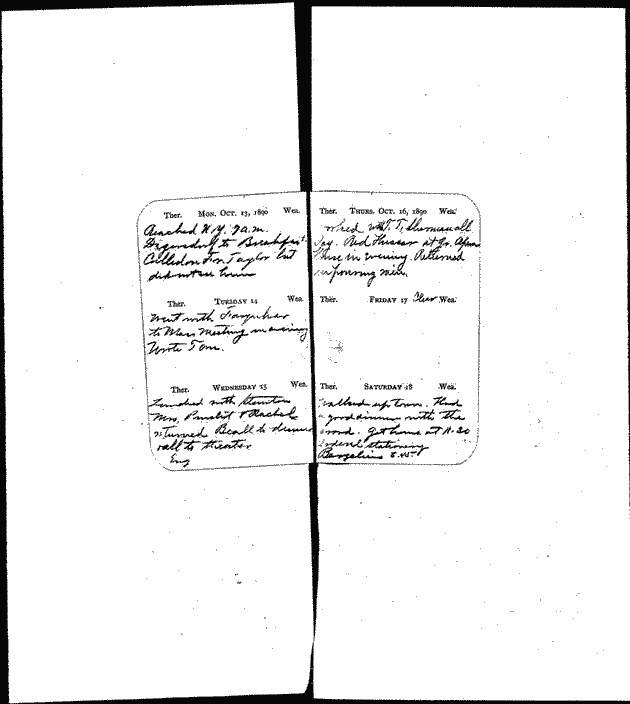 Ther. MON. OCT. 13, 1890 Wea.
Reached N.Y. 7 a.m.
to Breakfast.
Called on Taylor but
did not see him
Ther. TUESDAY 14 Wea.
Went with Farquhar
to Mass Meeting in evening
Wrote Tom.
Ther. WEDNESDAY 15 Wea.
Lunched with
Mrs, & Rachel
returned to dinner
all to theater
Eng
Ther. THURS. OCT. 16, 1890 Wea.
with T. T. all
day. Red Hussar at Gr. Opera
House in evening. Returned
men.
Ther. FRIDAY 17 Clear Wea.
Ther. SATURDAY 18 Wea.
Walked up town. Had
a good dinner with the
crowd. Got home at 11.30
stationery
5.45